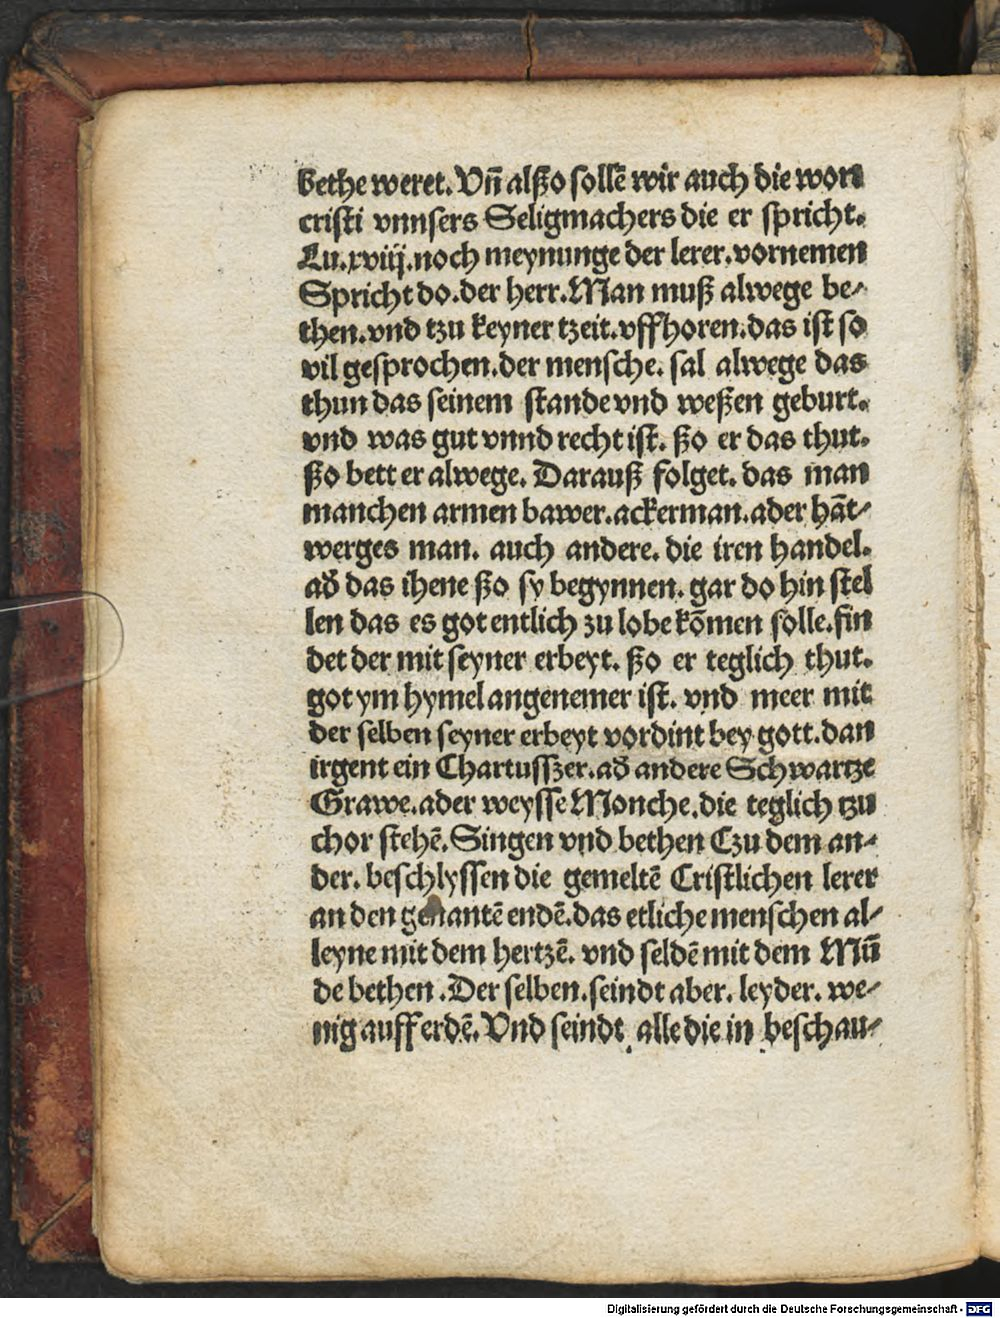 bethe weret. Vñ alßo sollē wir auch die wort
cristi vnnsers Seligmachers die er spricht.
Lu. xviij. noch meynunge der lerer. vornemen
Spricht do. der herr. Man muß alwege be-
then. vnd tzu keyner tzeit. vffhoren. das ist so
vil gesprochen. der mensche. sal alwege das
thun das seinem stande vnd weßen geburt.
vnd was gut vnnd recht ist. ßo er das thut.
ßo bett er alwege. Darauß folget. das man
manchen armen bawer. ackerman. ader hāt-
werges man. auch andere. die iren handel.
ad̄ das ihene ßo sy begynnen. gar do hin stel
len das es got entlich zu lobe kōmen solle. fin
det der mit seyner erbeyt. ßo er teglich thut.
got ym hymel angenemer ist. vnd meer mit
der selben seyner erbeyt vordint bey gott. dan
irgent ein Chartusszer. ad̄ andere Schwartze
Grawe. ader weysse Monche. die teglich tzu
chor stehē. Singen vnd bethen Czu dem an-
der. beschlyssen die gemeltē Cristlichen lerer
an den genantē endē. das etliche menschen al-
leyne mit dem hertzē. vnd seldē mit dem Mū
de bethen. Der selben. seindt aber. leyder. we-
nig auff erdē. Vnd seindt alle die in beschau-
Digitalisierung gefördert durch die Deutsche Forschungsgemeinschaft - DFG